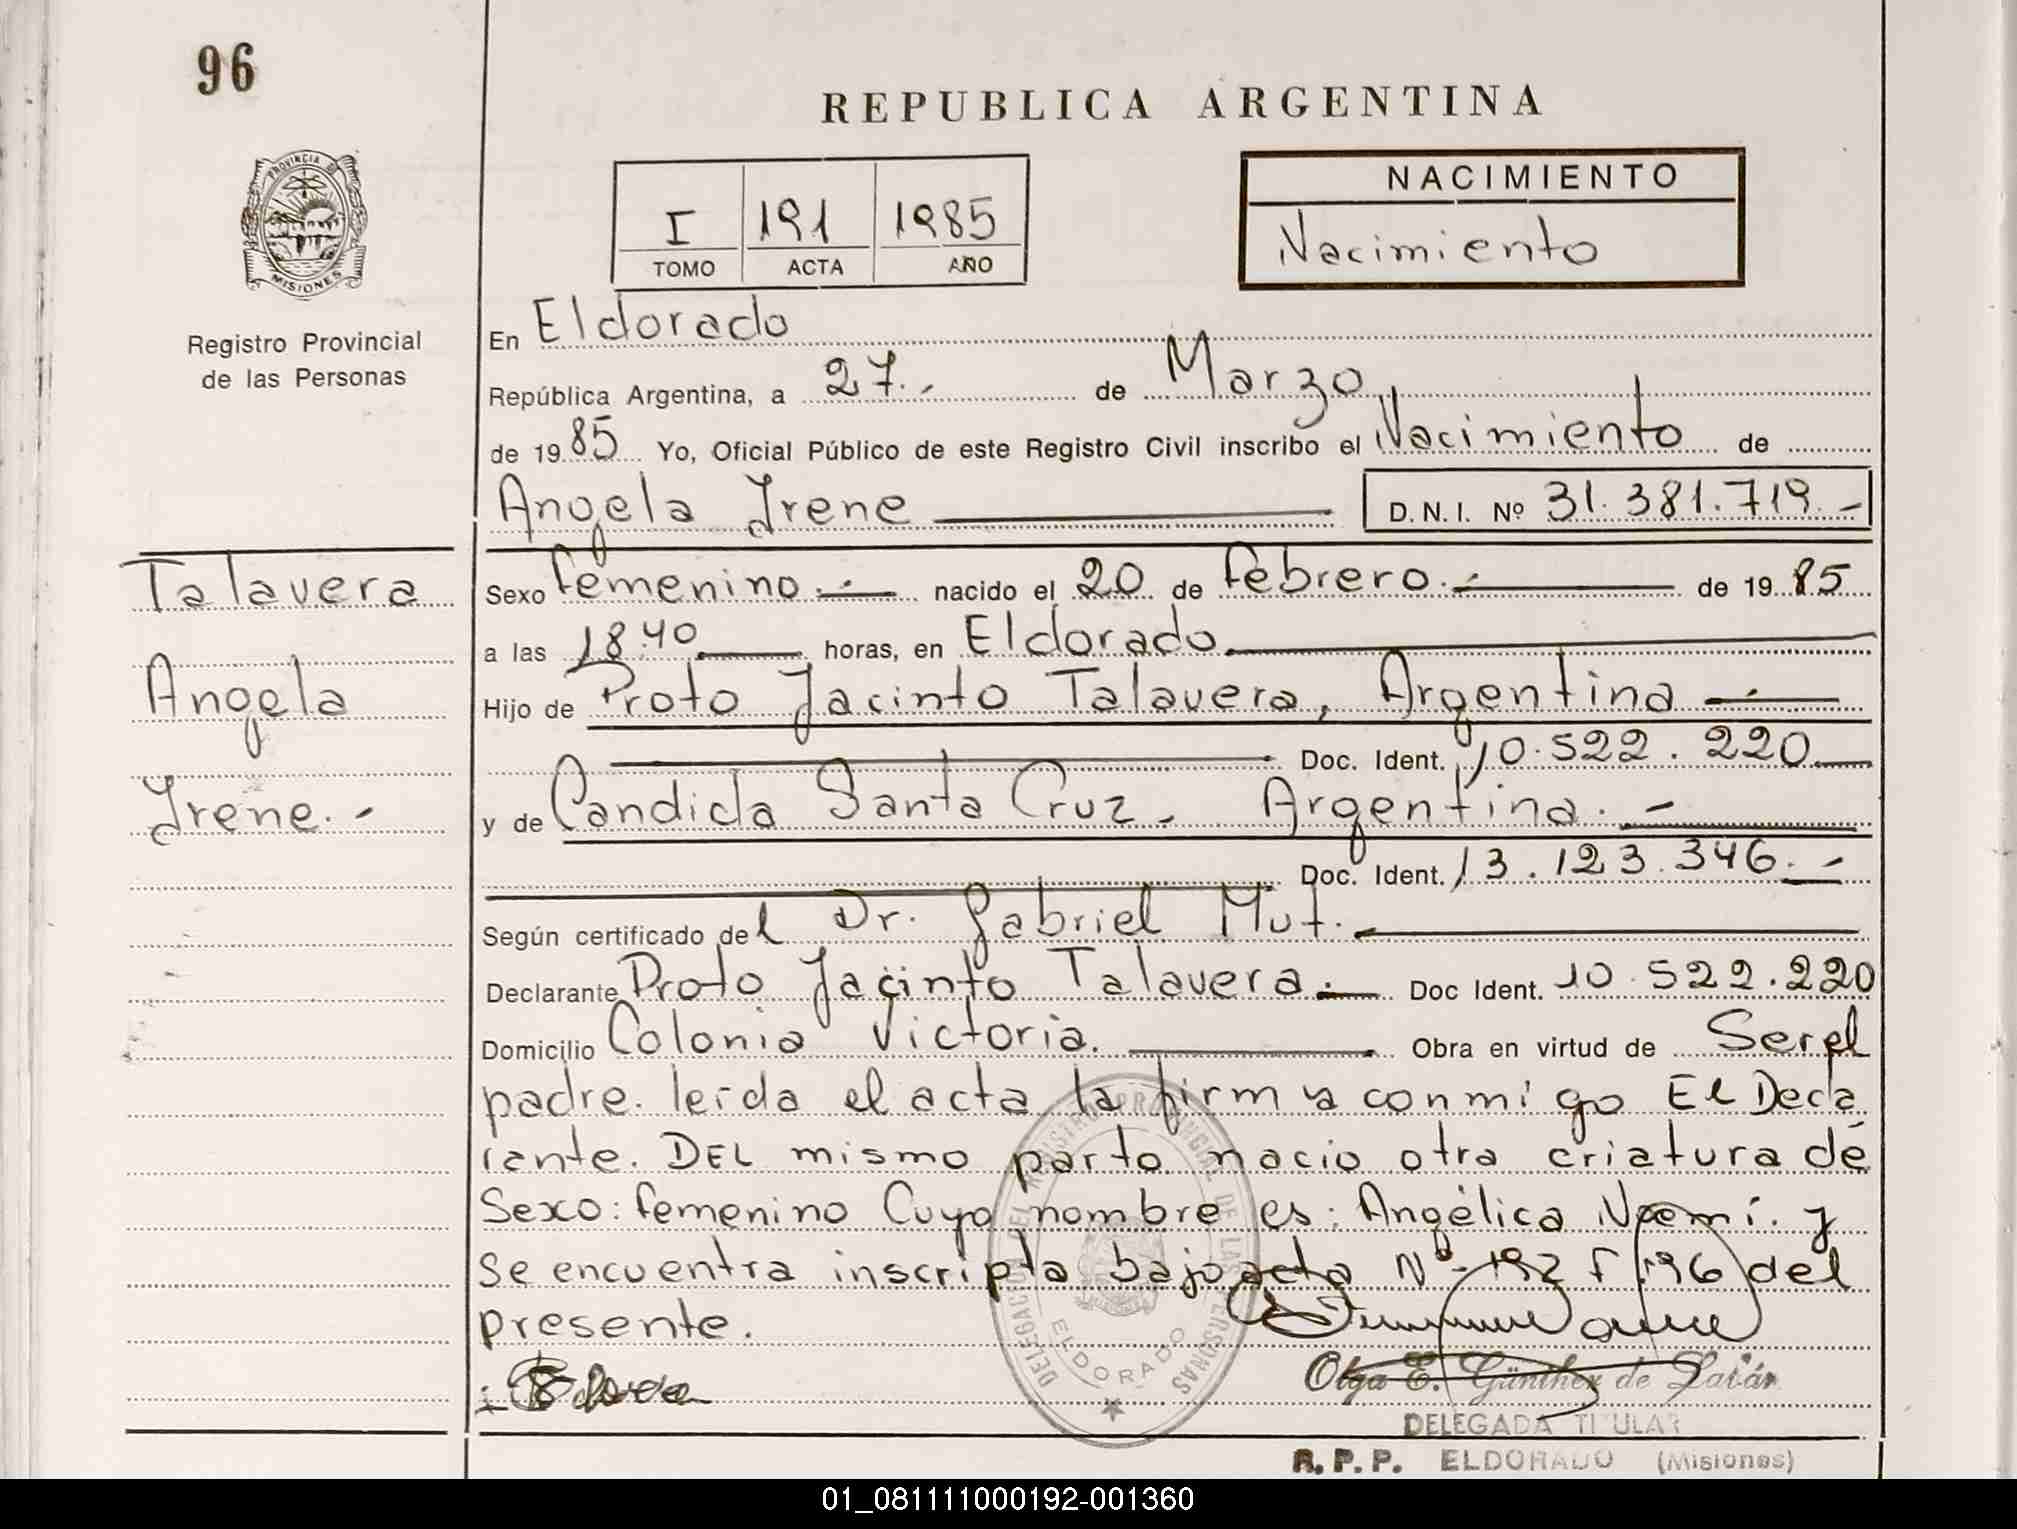 96
REPUBLICA ARGENTINA
PROVINCIA DE
MISIONES
Registro Provincial
de las Personas
I 191 1985
TOMO ACTA AÑO
NACIMIENTO
Nacimiento
En Eldorado
República Argentina, a 27.- de Marzo
de 1985 Yo, Oficial Público de este Registro Civil inscribo el Nacimiento de
Angela Irene D.N.I. Nº 31.381.719.-
Talavera
Angela
Irene.-
Sexo femenino.- nacido el 20 de febrero.- de 1985
a las 18.40 horas, en Eldorado
Hijo de Proto Jacinto Talavera, Argentina -
Doc. Ident. 10.522.220
y de Candida Santa Cruz. Argentina.-
Doc. Ident. 13.123.346.-
Según certificado del Dr. Gabriel Mut.
Declarante Proto Jacinto Talavera. Doc Ident. 10.522.220
Domicilio Colonia Victoria. Obra en virtud de Ser el
padre. leída el acta la firma conmigo El Decla
rante. DEL mismo parto nacio otra criatura de
Sexo: femenino Cuyo nombre es: Angélica Noemí. y
se encuentra inscripta bajo acta Nº 192 F 196 del
presente.
DELEGACION DEL REGISTRO PROVINCIAL DE LAS PERSONAS
ELDORADO
Olga E. Günther de
DELEGADA TITULAR
R.P.P. ELDORADO (Misiones)
01_081111000192-001360